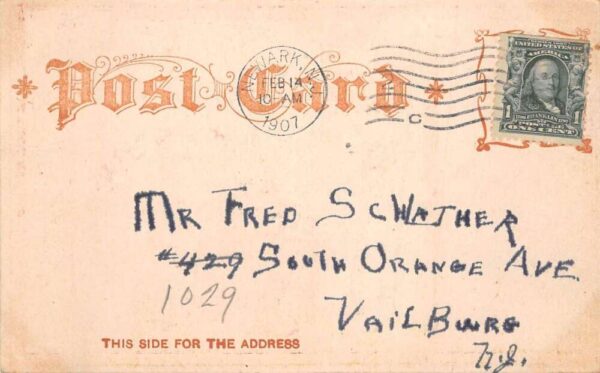 Post Card
NEWARK, N.J.
FEB 14
10-AM
1907
C
UNITED STATES OF AMERICA
1 1
POSTAGE
ONE CENT
Mr FRED SCWATHER
#429 SOUTH ORANGE AVE
1029
VAILBURG
N.J.
THIS SIDE FOR THE ADDRESS